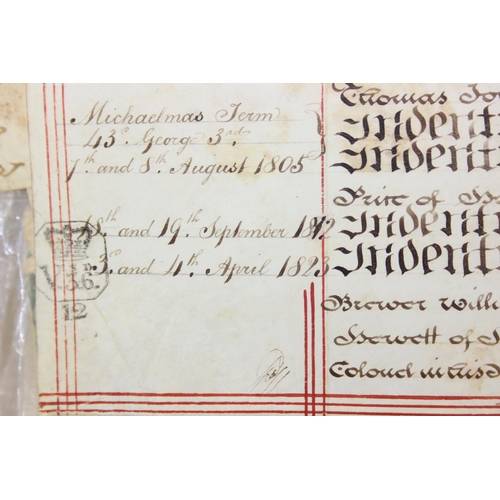 Michaelmas Term
43.d George 3rd.
7th and 8th. August 1805
18th and 19th. September 1812
3d. and 4th. April 1823
12
Thomas
Indent
Indent
of
Indent
Indent
Brewer Will
Hewett of